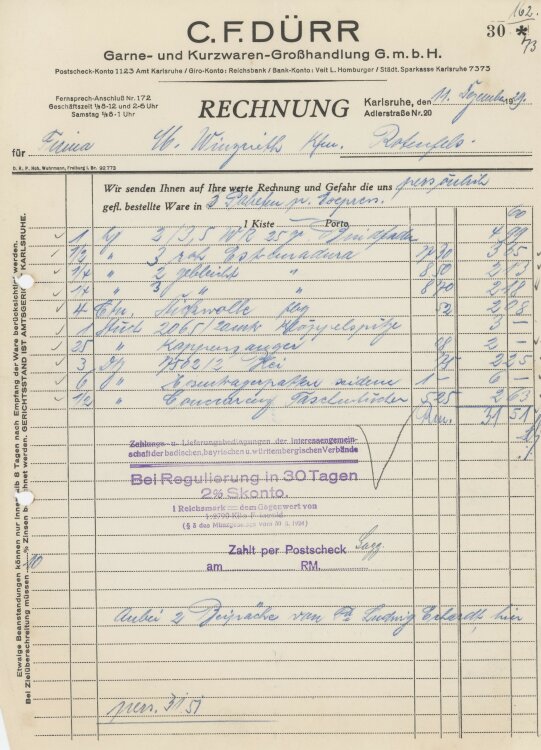 162.
30 * 73
C. F. DÜRR
Garne- und Kurzwaren-Großhandlung G. m. b. H.
Postscheck-Konto 1123 Amt Karlsruhe / Giro-Konto: Reichsbank / Bank-Konto: Veit L. Homburger / Städt. Sparkasse Karlsruhe 7373
Fernsprech-Anschluß Nr. 172
Geschäftszeit ½8-12 und 2-6 Uhr
Samstag ½8-1 Uhr
RECHNUNG
Karlsruhe, den 11. Dezember 1929.
Adlerstraße Nr. 20
für Firma W. Rotenfels.
D. R. P. Hch. Wuhrmann, Freiburg i. Br. 92 773
Wir senden Ihnen auf Ihre werte Rechnung und Gefahr die uns persönlich
gefl. bestellte Ware in 2 p. Express.
1 Kiste Porto 60
1 2/3,5 25 gr 4 99
1/2 " 3 Estremadura 7 30 3 65
1/4 " 2 gebleicht " 8 50 2 13
1/4 " 3 " " 8 70 2 18
4 52 2 08
1 Stück 2065/ Klöppelspitze 3 –
25 " 08 2 –
3 2 25
6 " seidene 1 – 6 –
1/2 " Taschentücher 5 25 2 63
31 51
Zahlungs- u. Lieferungsbedingungen der Interessengemein-
schaft der badischen, bayrischen u. württembergischen Verbände
Bei Regulierung in 30 Tagen
2% Skonto.
1 Reichsmark = dem Gegenwert von
1/2790 Kilo Feingold.
(§ 3 des Münzgesetzes vom 30. 8. 1924)
Zahlt per Postscheck
am RM.
Anbei 2 von Ludwig Erhardt, hier
31 51
Etwaige Beanstandungen können nur innerhalb 8 Tagen nach Empfang der Ware berücksichtigt werden.
Bei Zielüberschreitung müssen 10 % Zinsen berechnet werden. GERICHTSSTAND IST AMTSGERICHT KARLSRUHE.